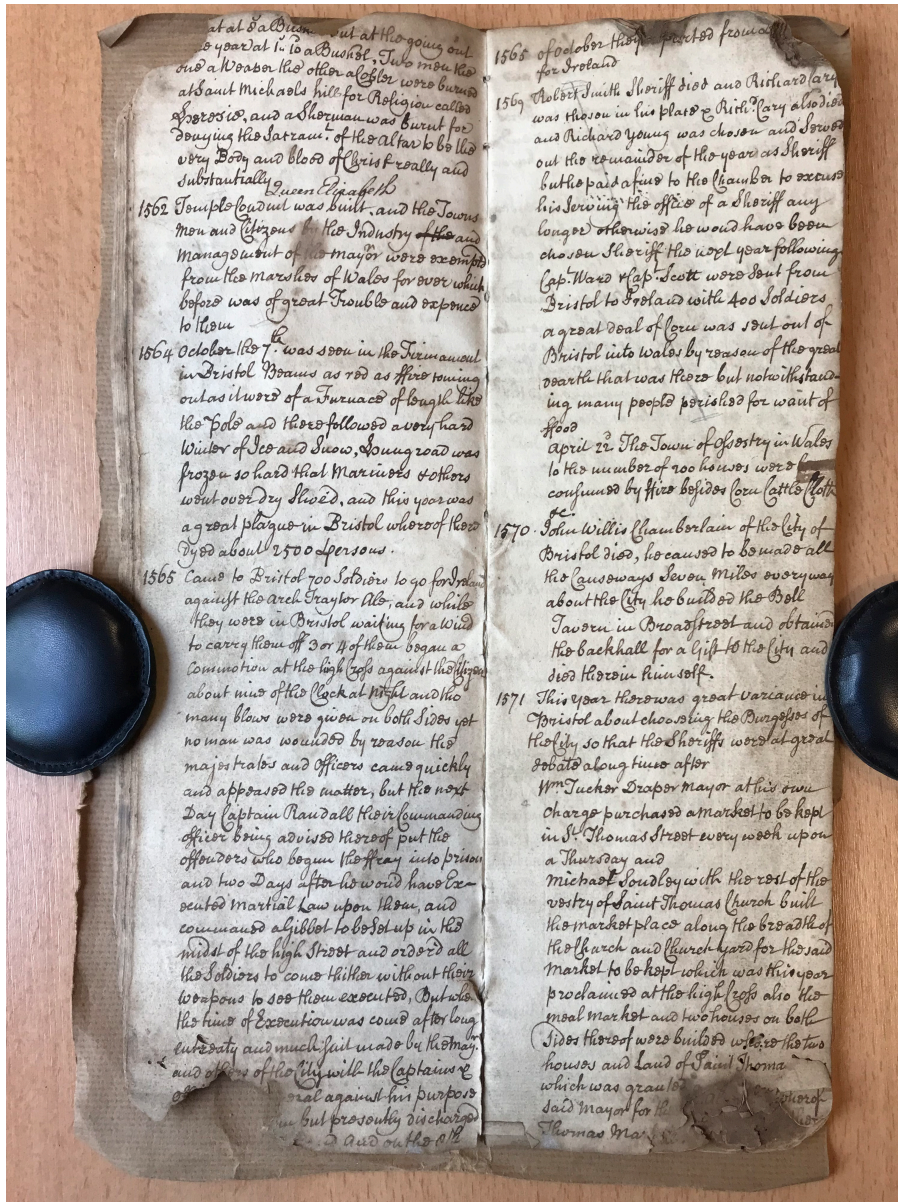 at at a Bus but at the going out
year at a Bushel, Two men the
one a Weaver the other a Cobler were burned
at Saint Michaels hill for Religion called
Heresie, and a Sherman was burnt for
denying the Sacramt. of the Altar to be the
very Body and blood of Christ really and
substantially
Queen Elizabeth
1562 Temple Conduit was built, and the Towns
men and Citizens by the Industry of the and
management of the mayor were exempted
from the marshes of Wales for ever which
before was of great Trouble and expence
to them
1564 October the 7th. was seen in the Firmament
in Bristol Beams as red as ffire coming
out as it were of a Furnace of length like
the Pole and there followed a very hard
Winter of Ice and Snow, Hungroad was
frozen so hard that Mariners & others
went over dry Shod, and this year was
a great plague in Bristol whereof there
Dyed about 2500 persons.
1565 Came to Bristol 700 Soldiers to go for Ireland
against the Arch Traytor and while
they were in Bristol waiting for a Wind
to carry them off 3 or 4 of them began a
Commotion at the high Cross against the Citizens
about nine of the Clock at Night and tho
many blows were given on both Sides yet
no man was wounded by reason the
majestrates and Officers came quickly
and appeased the matter, but the next
Day Captain Randall their Commanding
officer being advised thereof put the
offenders who begun the ffray into prison
and two Days after he woud have Exe
ecuted Martial Law upon them, and
commanded a Gibbet to be Set up in the
midst of the high Street and orderd all
the Soldiers to come thither without their
Weapons to see them executed, But when
the time of Execution was come after long
entreaty and much Suit made by the mayr.
and others of the City with the Captains &
eral against his purpose
but presently discharged
And on the 8th
1565 of October they departed from
for Ireland
1569 Robert Smith Sheriff died and Richard Cary
was chosen in his place & Richd. Cary also died
and Richard Young was chosen and Served
out the remainder of the year as Sheriff
but he paid a fine to the Chamber to excuse
his Serving the office of a Sheriff any
longer otherwise he would have been
chosen Sheriff the next year following
Capt. Ward & Capt. Scott were Sent from
Bristol to Ireland with 400 Soldiers
a great deal of Corn was sent out of
Bristol into Wales by reason of the great
dearth that was there but notwithstand-
ing many people perished for want of
ffood
April 22. The Town of Ossestry in Wales
to the number of 200 houses were
consumed by ffire besides Corn Cattle Cloth
&c
1570. John Willis Chamberlain of the City of
Bristol died, he caused to be made all
the Causeways Seven Miles every way
about the City he builded the Bell
Tavern in Broadstreet and obtained
the backhall for a Gift to the City and
died therein himself.
1571 This year there was great variance in
Bristol about choosing the Burgesses of
the City so that the Sheriffs were at great
debate a long time after
Wm Tucker Draper Mayor at his own
charge purchased a market to be kept
in St. Thomas Street every week upon
a Thursday and
Michael Soudley with the rest of the
vestry of Saint Thomas Church built
the market place along the breadth of
the Church and Church yard for the said
Market to be kept which was this year
proclaimed at the high Cross also the
meal market and two houses on both
Sides thereof were builded where the two
houses and Land of Saint Thoma
which was grant wherof
said Mayor for th
Thomas Ma